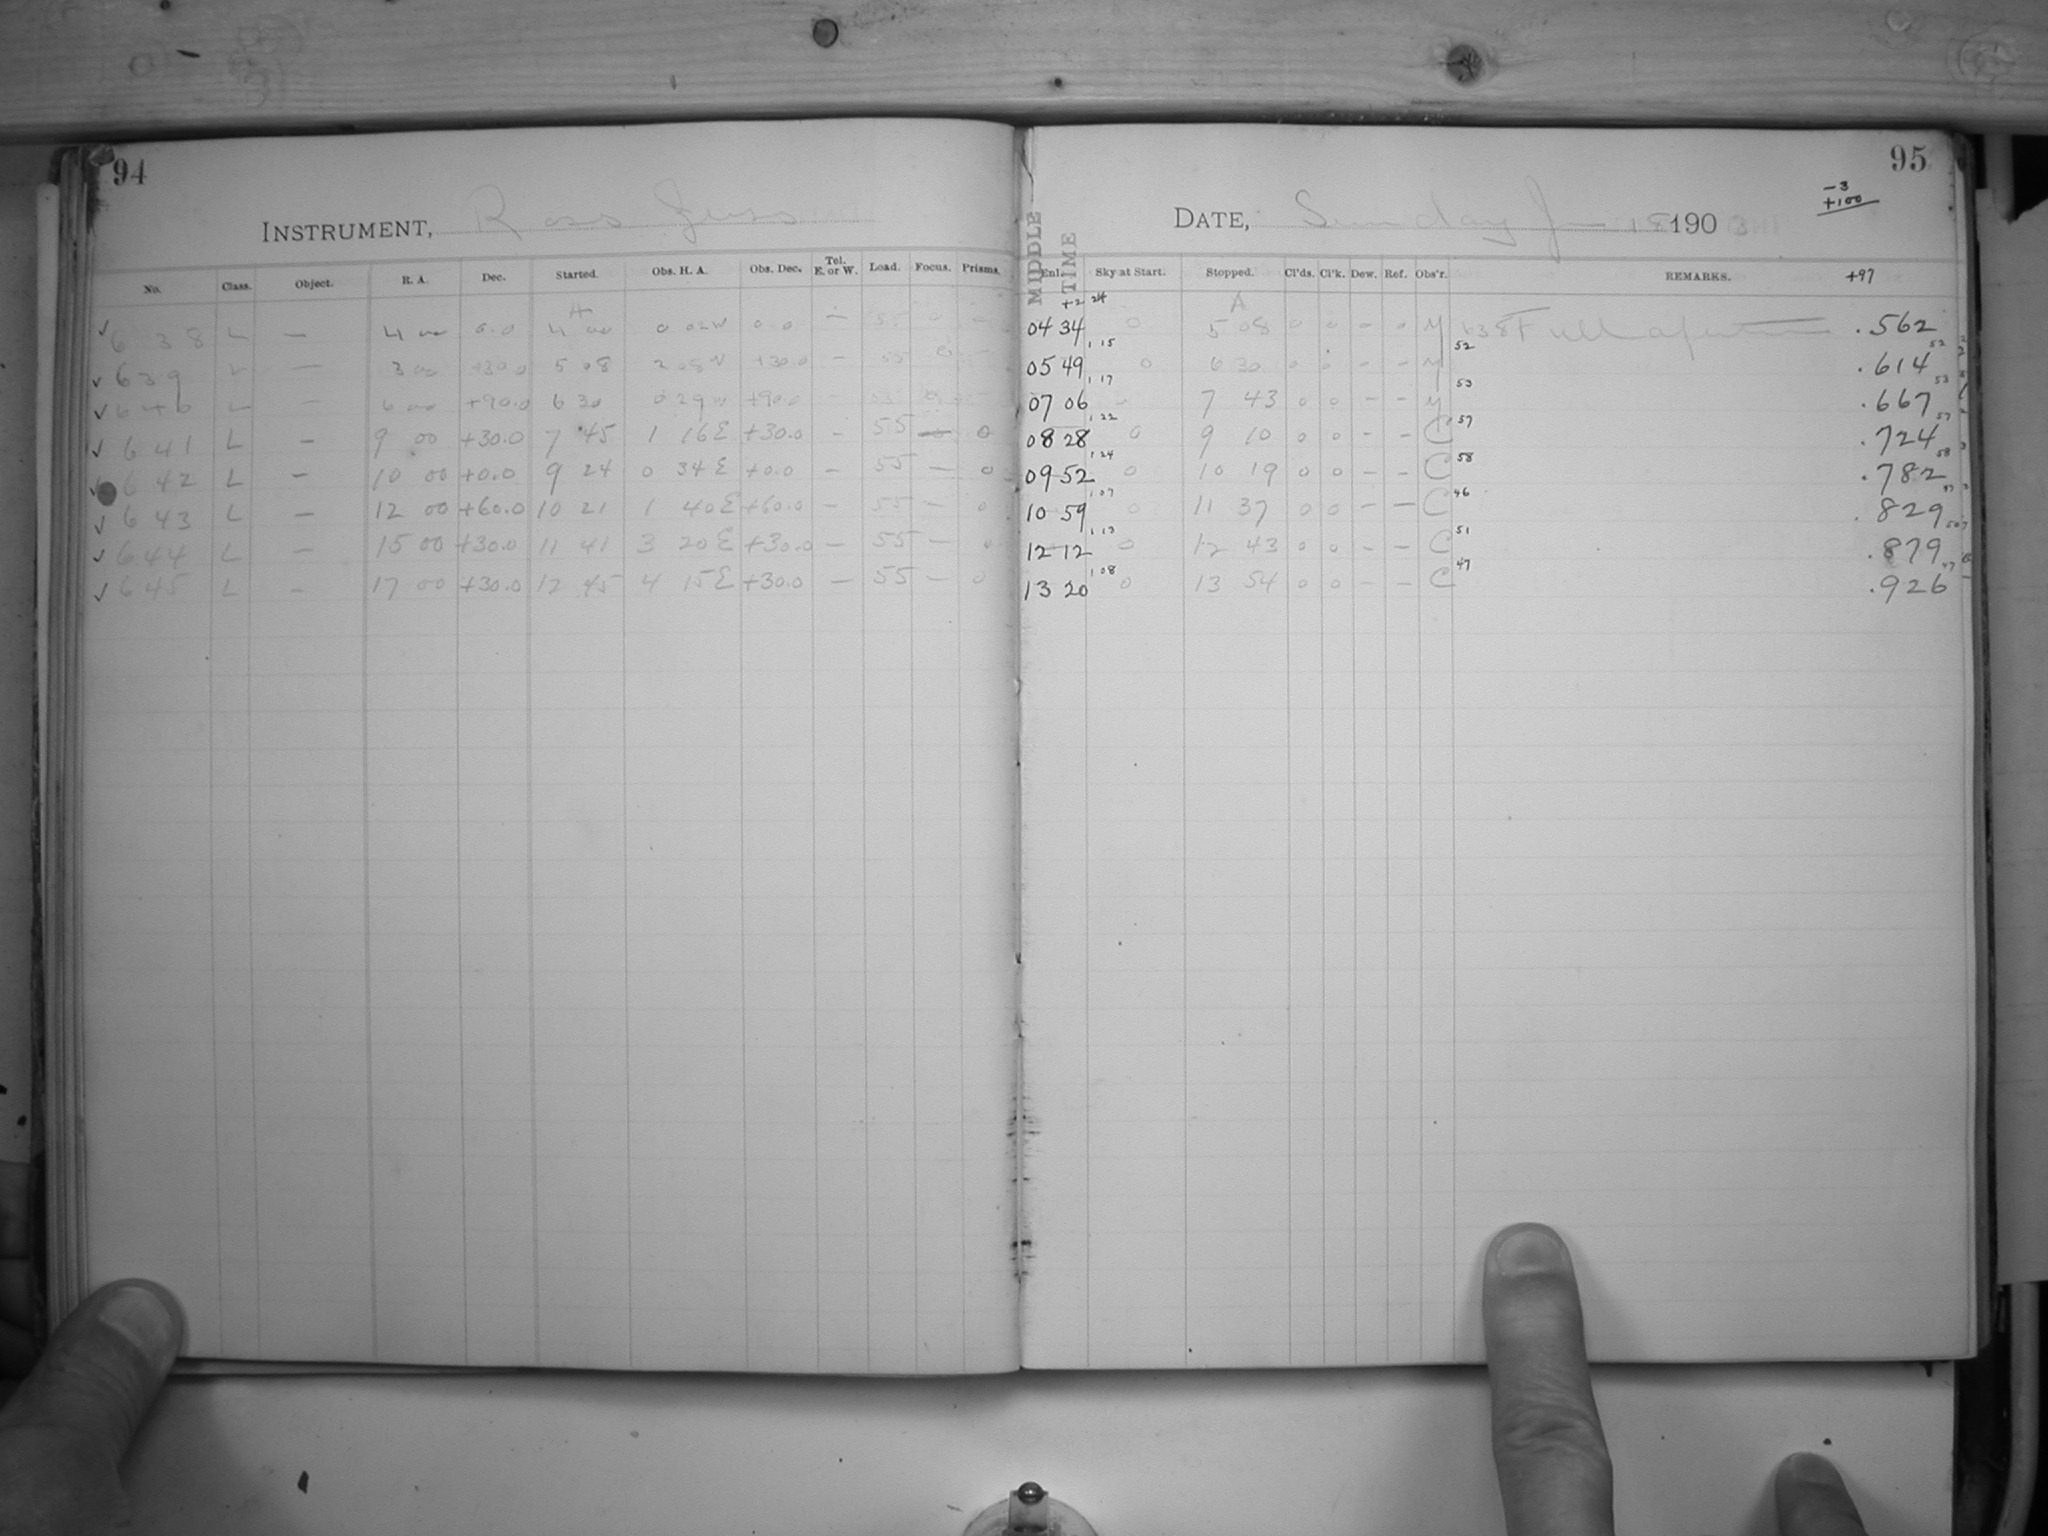 94
INSTRUMENT, Ross
No. Class. Object. R. A. Dec. Started. Obs. H. A. Obs. Dec. Tel. E. or W. Load. Focus. Prisms.
638 L — 4 00 0.0 4 00 0 02W 0.0 — 55
639 L — 3 00 +30.0 5 08 2 08W +30.0 — 55
640 L — 6 00 +90.0 6 30 0 29W +90.0 —
641 L — 9 00 +30.0 7 45 1 16E +30.0 — 55 — 0
642 L — 10 00 +0.0 9 24 0 34E +0.0 — 55 — 0
643 L — 12 00 +60.0 10 21 1 40E +60.0 — 55 — 0
644 L — 15 00 +30.0 11 41 3 20E +30.0 — 55 — 0
645 L — 17 00 +30.0 12 45 4 15E +30.0 — 55 — 0
95
−3
+100
DATE, Sunday 18 190
MIDDLE TIME
Enl. Sky at Start. Stopped. Cl'ds. Cl'k. Dew. Ref. Obs'r. REMARKS. +97
+2 24 A
04 34 0 5 08 0 0 — — y 638 Full .562
1 15 52 52
05 49 0 6 30 0 0 — — y .614
1 17 53 53
07 06 7 43 0 0 — — y .667
1 22 57 57
08 28 0 9 10 0 0 — — C .724
1 24 58 58
09 52 0 10 19 0 0 — — C .782
1 07 46
10 59 0 11 37 0 0 — — C .829
1 13 51
12 12 0 12 43 0 0 — — C .879
1 08 47 47
13 20 0 13 54 0 0 — — C .926